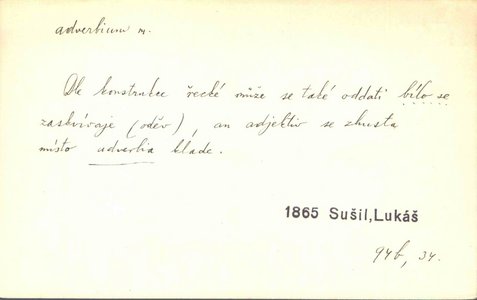 adverbium n.
Dle konstrukce řecké může se také oddati bílo se
zaskvívaje (oděv), an adjektiv se zhusta
místo adverbia klade.
1865 Sušil,Lukáš
94b, 34.